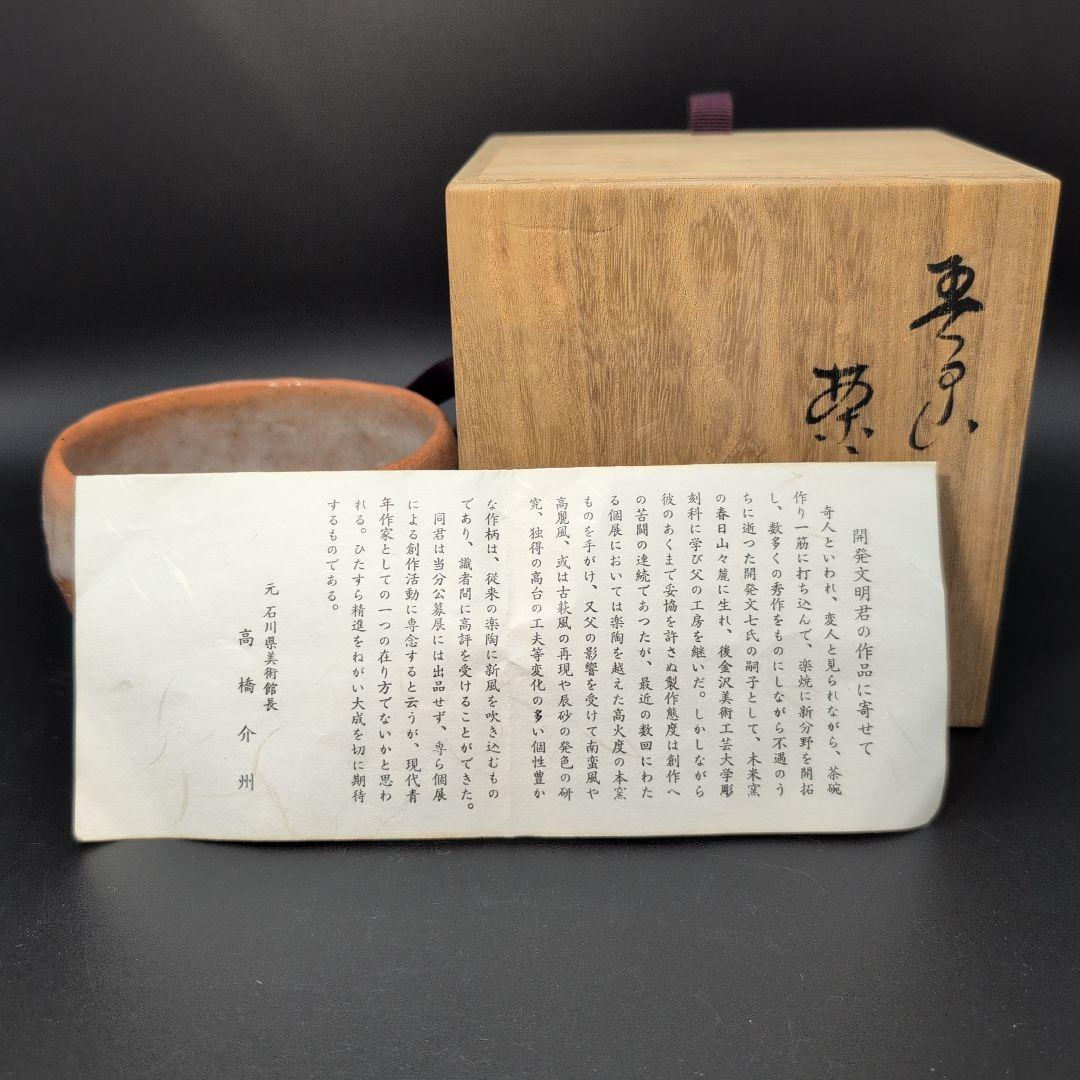 開発文明君の作品に寄せて
奇人といわれ、変人と見られながら、茶碗
作り一筋に打ち込んで、楽焼に新分野を開拓
し、数多くの秀作をものにしながら不遇のう
ちに逝つた開発文七氏の嗣子として、木米窯
の春日山々麓に生れ、後金沢美術工芸大学彫
刻科に学び父の工房を継いだ。しかしながら
彼のあくまで妥協を許さぬ製作態度は創作へ
の苦闘の連続であつたが、最近の数回にわた
る個展においては楽陶を越えた高火度の本窯
ものを手がけ、又父の影響を受けて南蛮風や
高麗風、或は古萩風の再現や辰砂の発色の研
究、独得の高台の工夫等変化の多い個性豊か
な作柄は、従来の楽陶に新風を吹き込むもの
であり、識者間に高評を受けることができた。
同君は当分公募展には出品せず、専ら個展
による創作活動に専念すると云うが、現代青
年作家としての一つの在り方でないかと思わ
れる。ひたすら精進をねがい大成を切に期待
するものである。
元 石川県美術館長
高橋介州